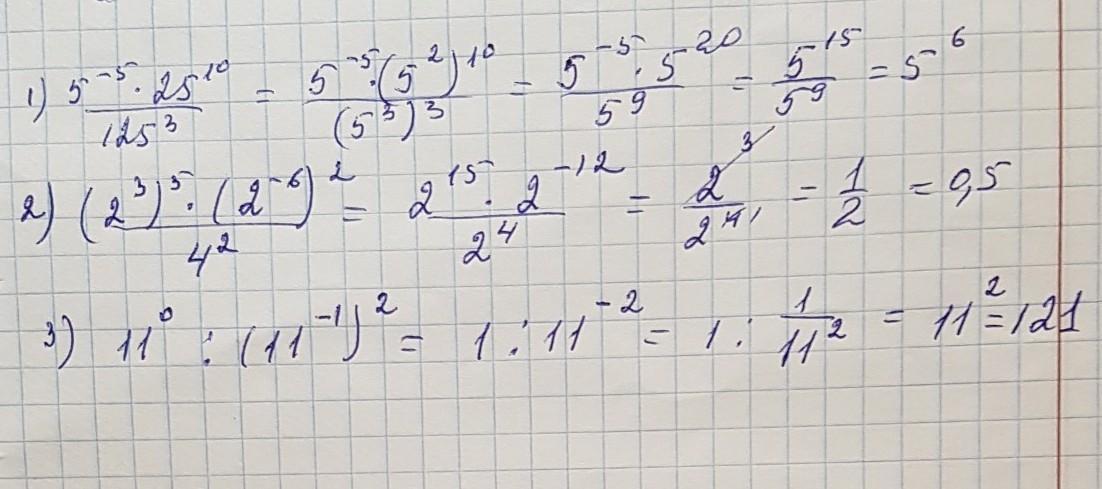 1) (5^-5 · 25^10)/(125^3) = (5^-5 · (5^2)^10)/((5^3)^3) = (5^-5 · 5^20)/(5^9) = 5^15/5^9 = 5^6
2) ((2^3)^5 · (2^-6)^2)/(4^2) = (2^15 · 2^-12)/(2^4) = 2^3/2^4 1 = 1/2 = 0,5
3) 11^0 : (11^-1)^2 = 1 : 11^-2 = 1 : 1/11^2 = 11^2 = 121